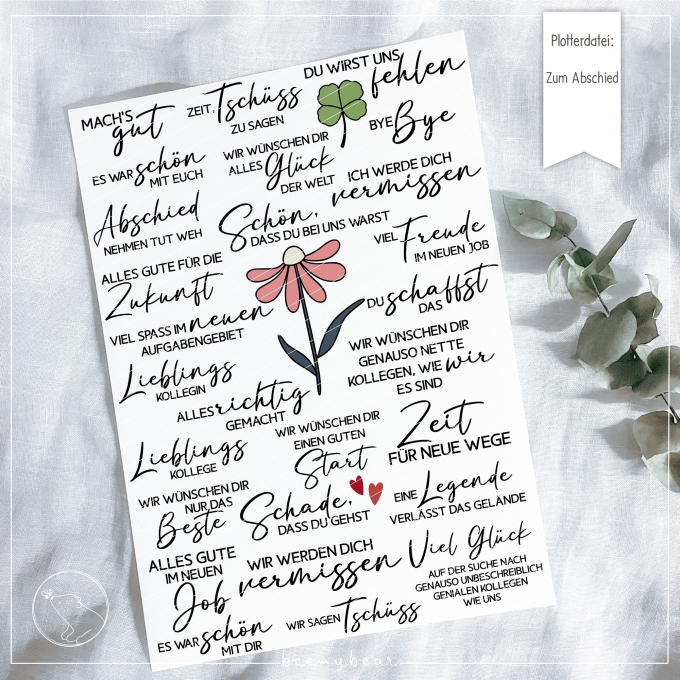 Plotterdatei:
Zum Abschied
MACH'S
gut
ZEIT, Tschüss
ZU SAGEN
DU WIRST UNS
fehlen
BYE Bye
ES WAR schön
MIT EUCH
WIR WÜNSCHEN DIR
ALLES Glück
DER WELT
ICH WERDE DICH
vermissen
Abschied
NEHMEN TUT WEH
Schön,
DASS DU BEI UNS WARST
VIEL Freude
IM NEUEN JOB
ALLES GUTE FÜR DIE
Zukunft
DU schaffst
DAS
VIEL SPASS IM neuen
AUFGABENGEBIET
WIR WÜNSCHEN DIR
GENAUSO NETTE
KOLLEGEN, WIE wir
ES SIND
Lieblings
KOLLEGIN
ALLES richtig
GEMACHT
WIR WÜNSCHEN DIR
EINEN GUTEN
Start
Zeit
FÜR NEUE WEGE
Lieblings
KOLLEGE
WIR WÜNSCHEN DIR
NUR DAS
Beste
Schade,
DASS DU GEHST
EINE Legende
VERLÄSST DAS GELÄNDE
ALLES GUTE
IM NEUEN
Job
WIR WERDEN DICH
vermissen
Viel Glück
AUF DER SUCHE NACH
GENAUSO UNBESCHREIBLICH
GENIALEN KOLLEGEN
WIE UNS
ES WAR schön
MIT DIR
WIR SAGEN Tschüss
beemybear